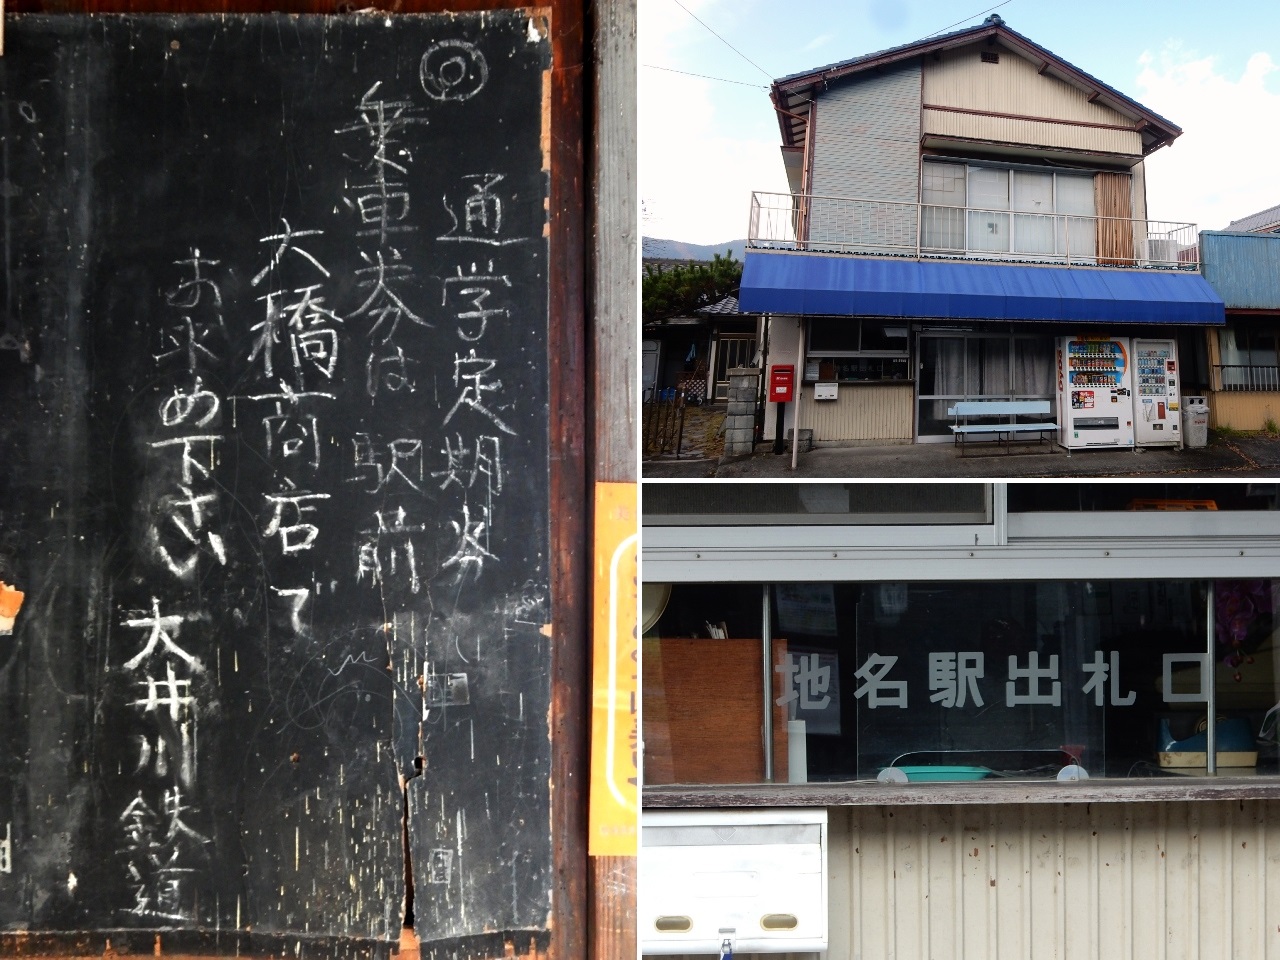 ◎
通学定期券
乗車券は駅前
大橋商店で
お求め下さい
大井川鉄道
地名駅出札口